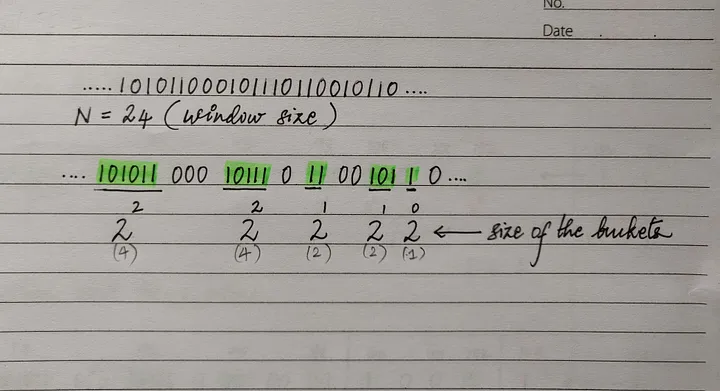 No.
Date . .
.....101011000101110110010110....
N = 24 (window size)
.... 101011 000 10111 0 11 00 101 1 0 ....
2 2 1 1 0
2 2 2 2 2 ← size of the buckets
(4) (4) (2) (2) (1)